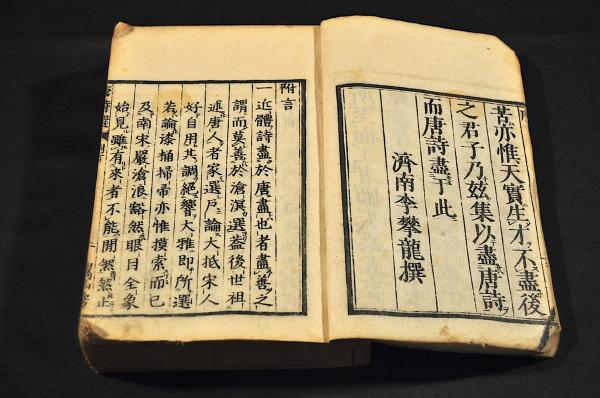 苦亦惟天實生才不盡後
之君子乃茲集以盡唐詩
而唐詩盡于此
濟南李攀龍撰
附言
一近體詩盡於唐盡也者盡善之
謂而莫善於滄溟選蓋後世祖
述唐人者家選戶論大抵宋人
好自用其調絕響大雅即所選
若論漆桶掃帚亦惟摸索而已
及南宋嚴滄浪豁然眼目全象
始見雖有來者不能間然然正